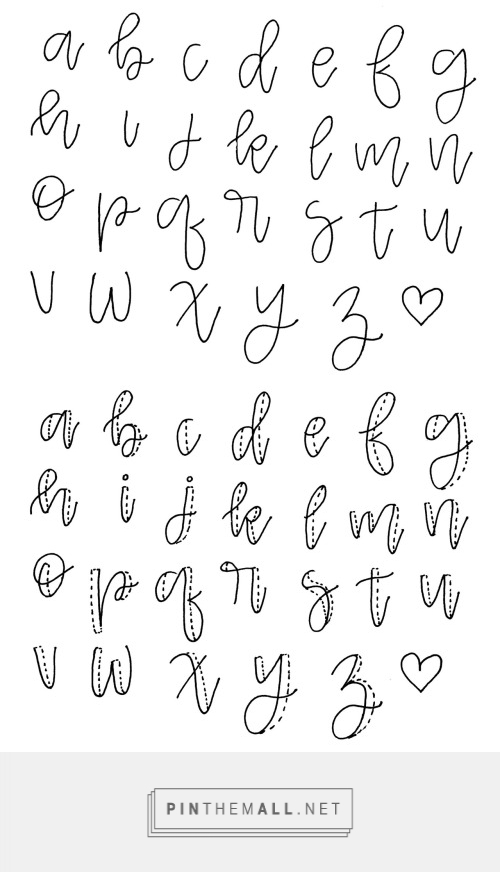 a b c d e f g
h i j k l m n
o p q r s t u
v w x y z
a b c d e f g
h i j k l m n
o p q r s t u
v w x y z
PINTHEMALL.NET